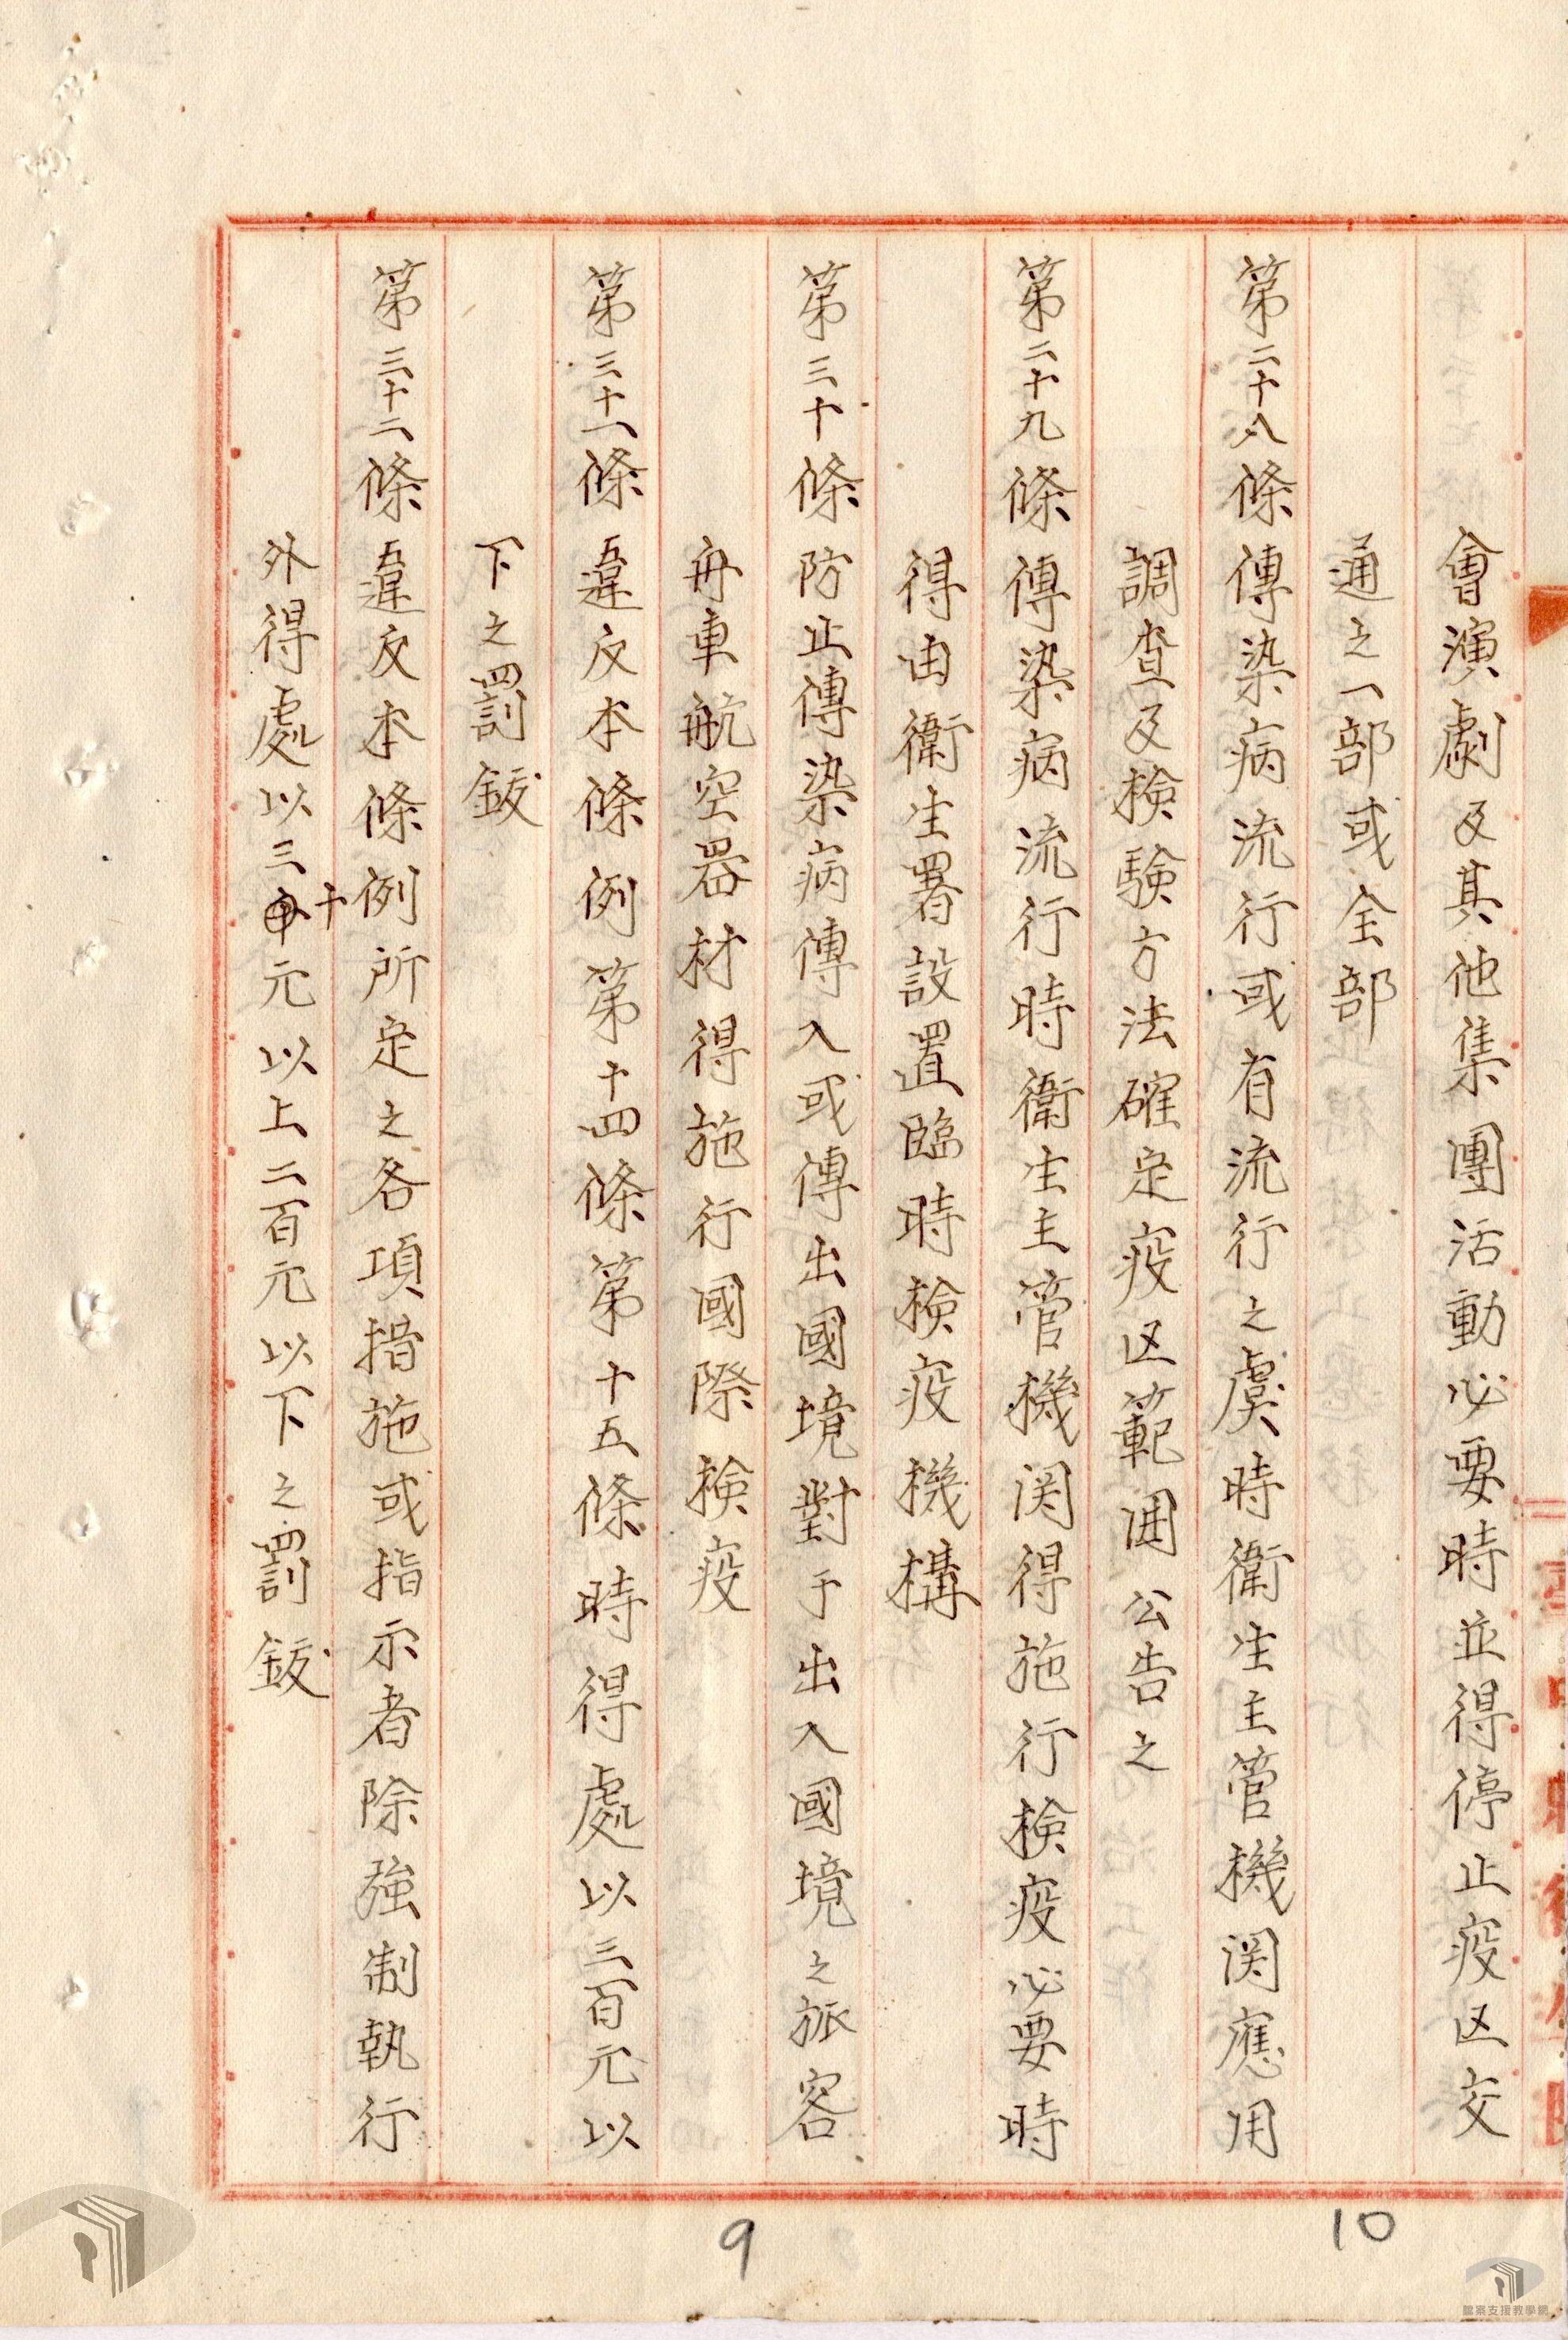 會演劇及其他集團活動必要時並得停止疫区交
通之一部或全部
第二十八條傳染病流行或有流行之虞時衛生主管機関應用
調查及検驗方法確定疫区範囲公告之
第二十九條傳染病流行時衛生主管機関得施行検疫必要時
得由衛生署設置臨時検疫機構
第三十條防止傳染病傳入或傳出國境對于出入國境之旅客
舟車航空器材得施行國際検疫
第三十一條違反本條例第十四條第十五條時得處以三百元以
下之罰鍰
第三十二條違反本條例所定之各項措施或指示者除強制執行
外得處以三十元以上二百元以下之罰鍰
9
10
檔案支援教學網